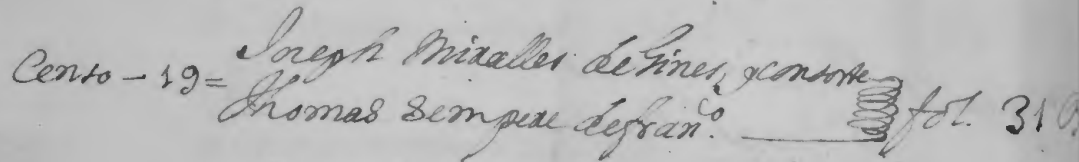 Censo - 19 = Joseph Miralles de Gines, y consorte
Thomas Sempere de fran.co fol. 31